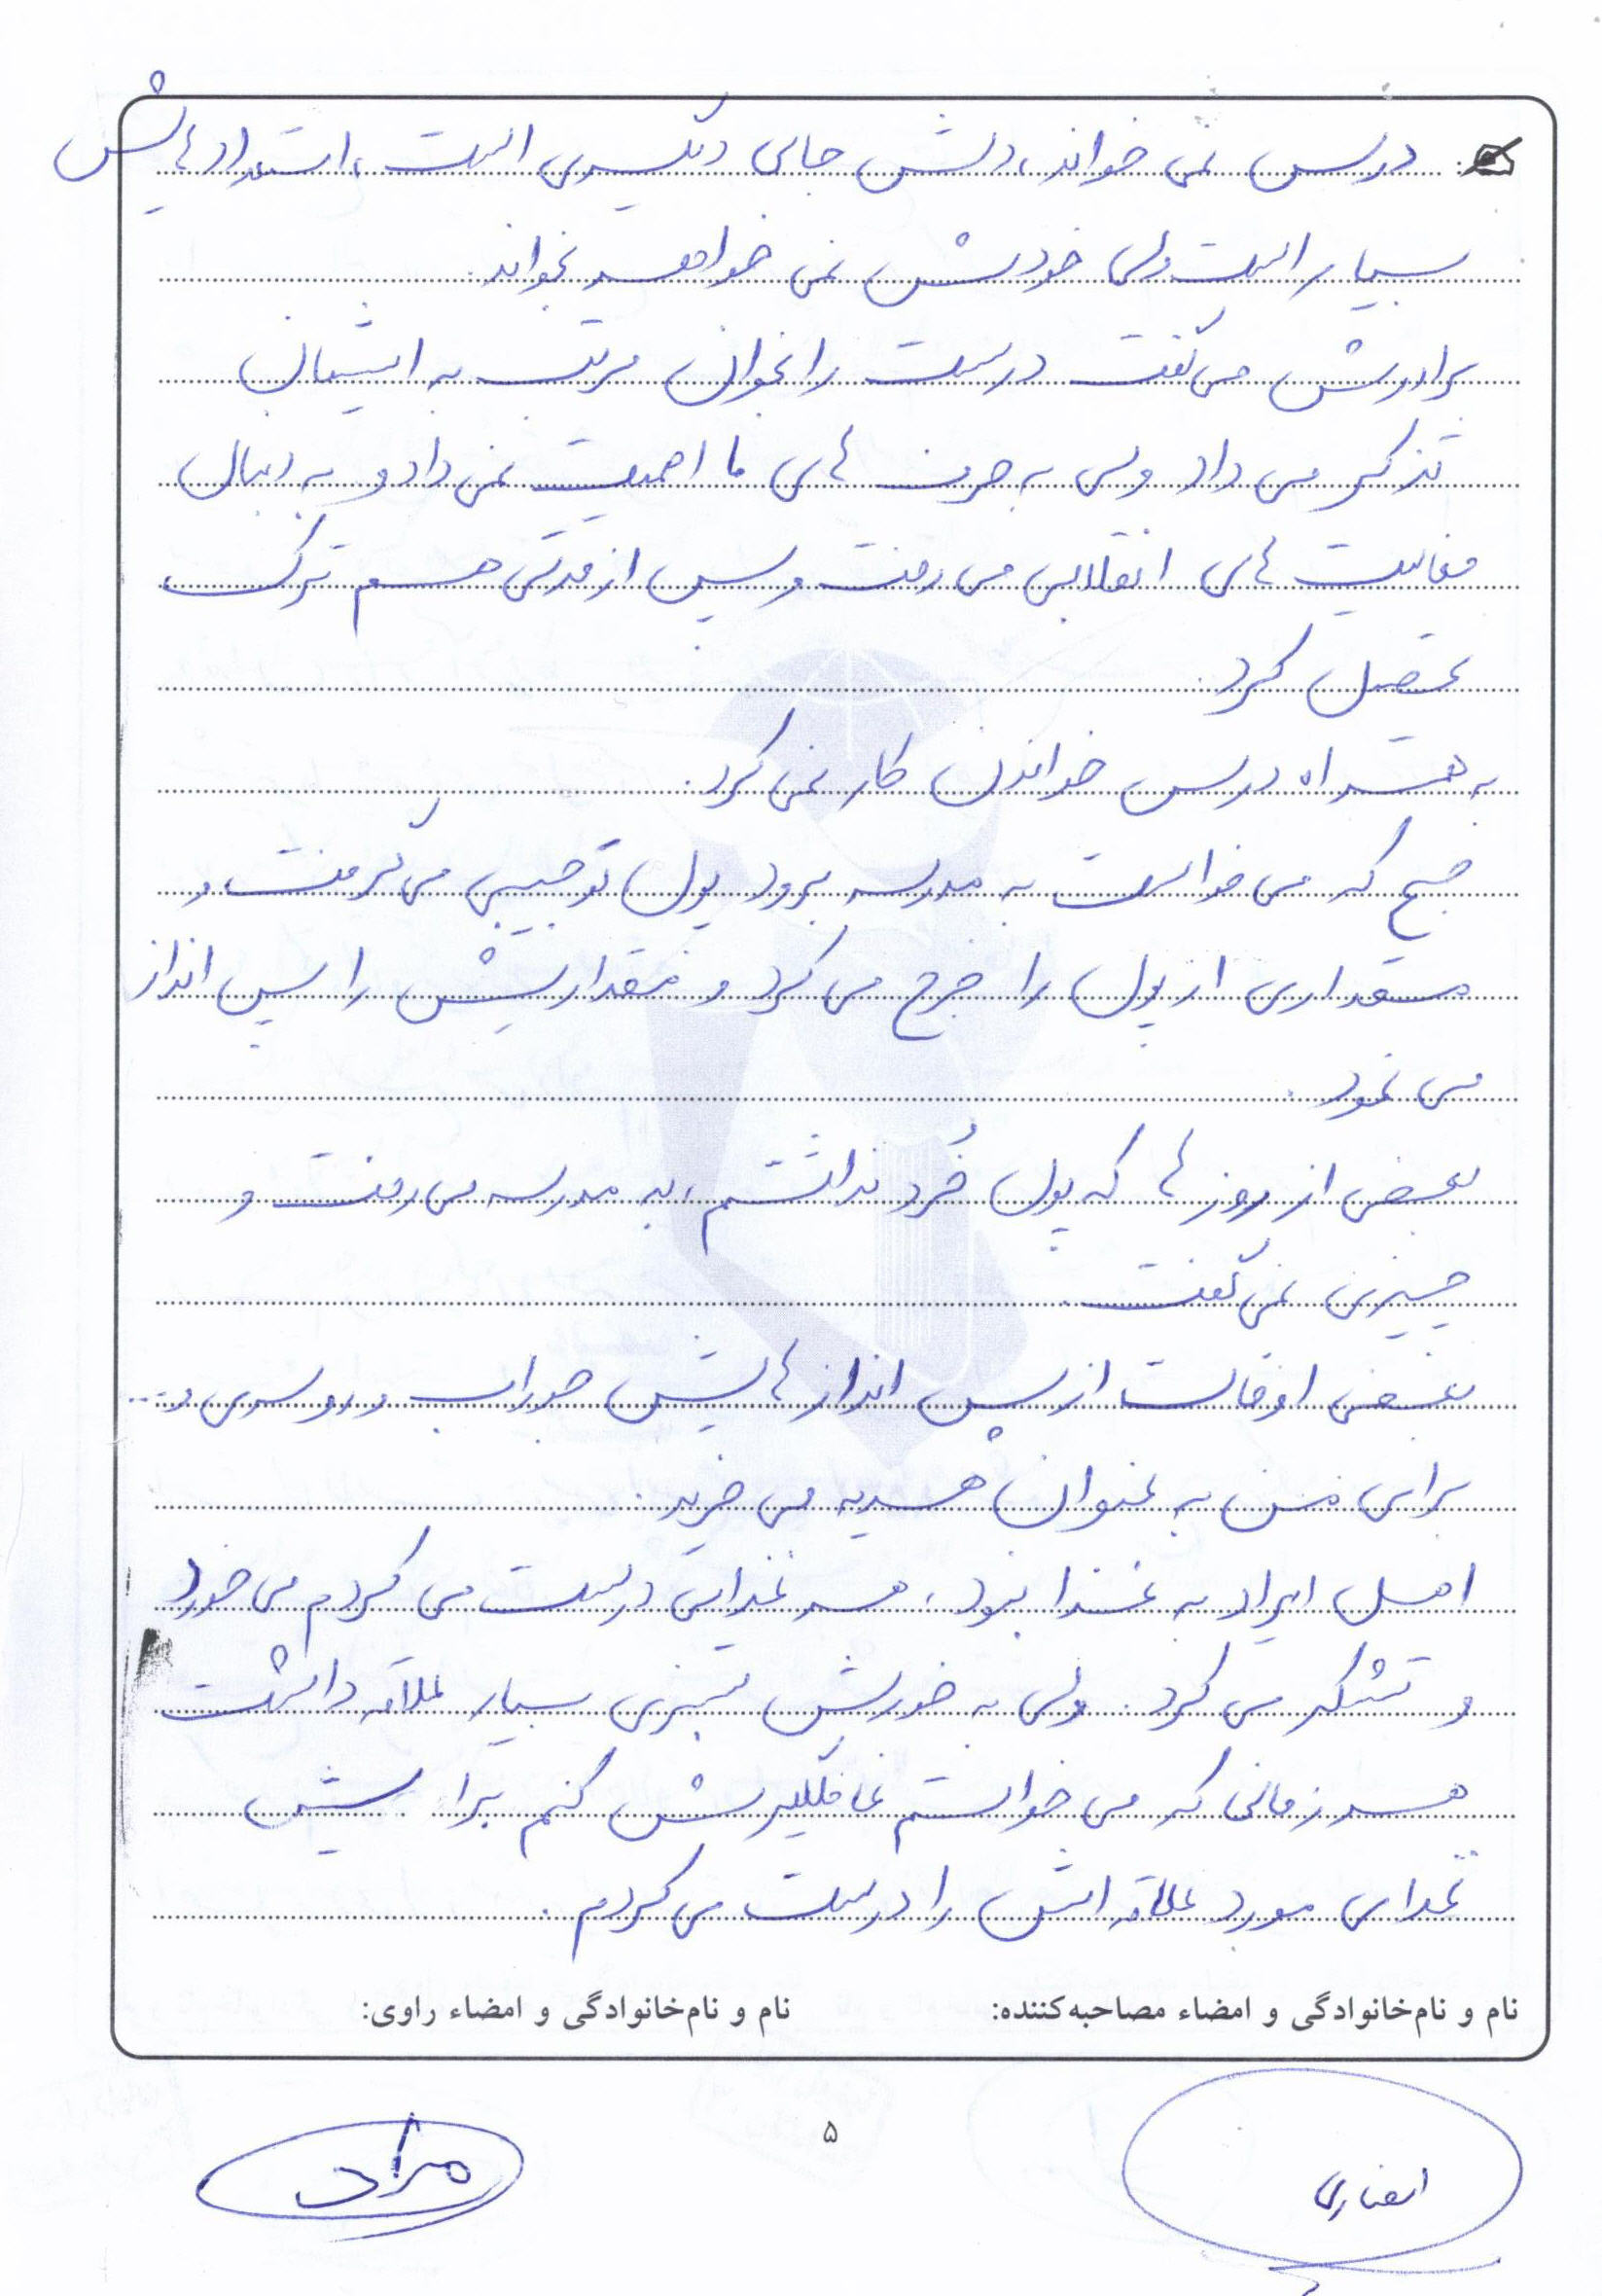 درس نمی خواند، دلش جای دیگری است، استعدادهایش
بسیار است ولی خودش نمی خواهد بخواند.
برادرش می گفت درست را بخوان مرتب به ایشان
تذکر می داد ولی به حرف های ما اهمیت نمی داد و به دنبال
فعالیت های انقلابی می رفت و پس از مدتی هم ترک
تحصیل کرد.
به همراه درس خواندن کار نمی کرد.
صبح که می خواست به مدرسه برود پول توجیبی می گرفت و
مقداری از پول را خرج می کرد و مقداریش را پس انداز
می نمود.
بعضی از روزها که پول خُرد نداشتم، به مدرسه می رفت و
چیزی نمی گفت.
بعضی اوقات از پس اندازهایش جوراب و روسری و...
برای من به عنوان هدیه می خرید.
اهل ایراد به غذا نبود، هر غذایی درست می کردم می خورد
و تشکر می کرد. ولی به خورش سبزی بسیار علاقه داشت
هر زمانی که می خواستم غافلگیرش کنم برایش
غذای مورد علاقه اش را درست می کردم.
نام و نام‌خانوادگی و امضاء مصاحبه‌کننده: نام و نام‌خانوادگی و امضاء راوی:
۵